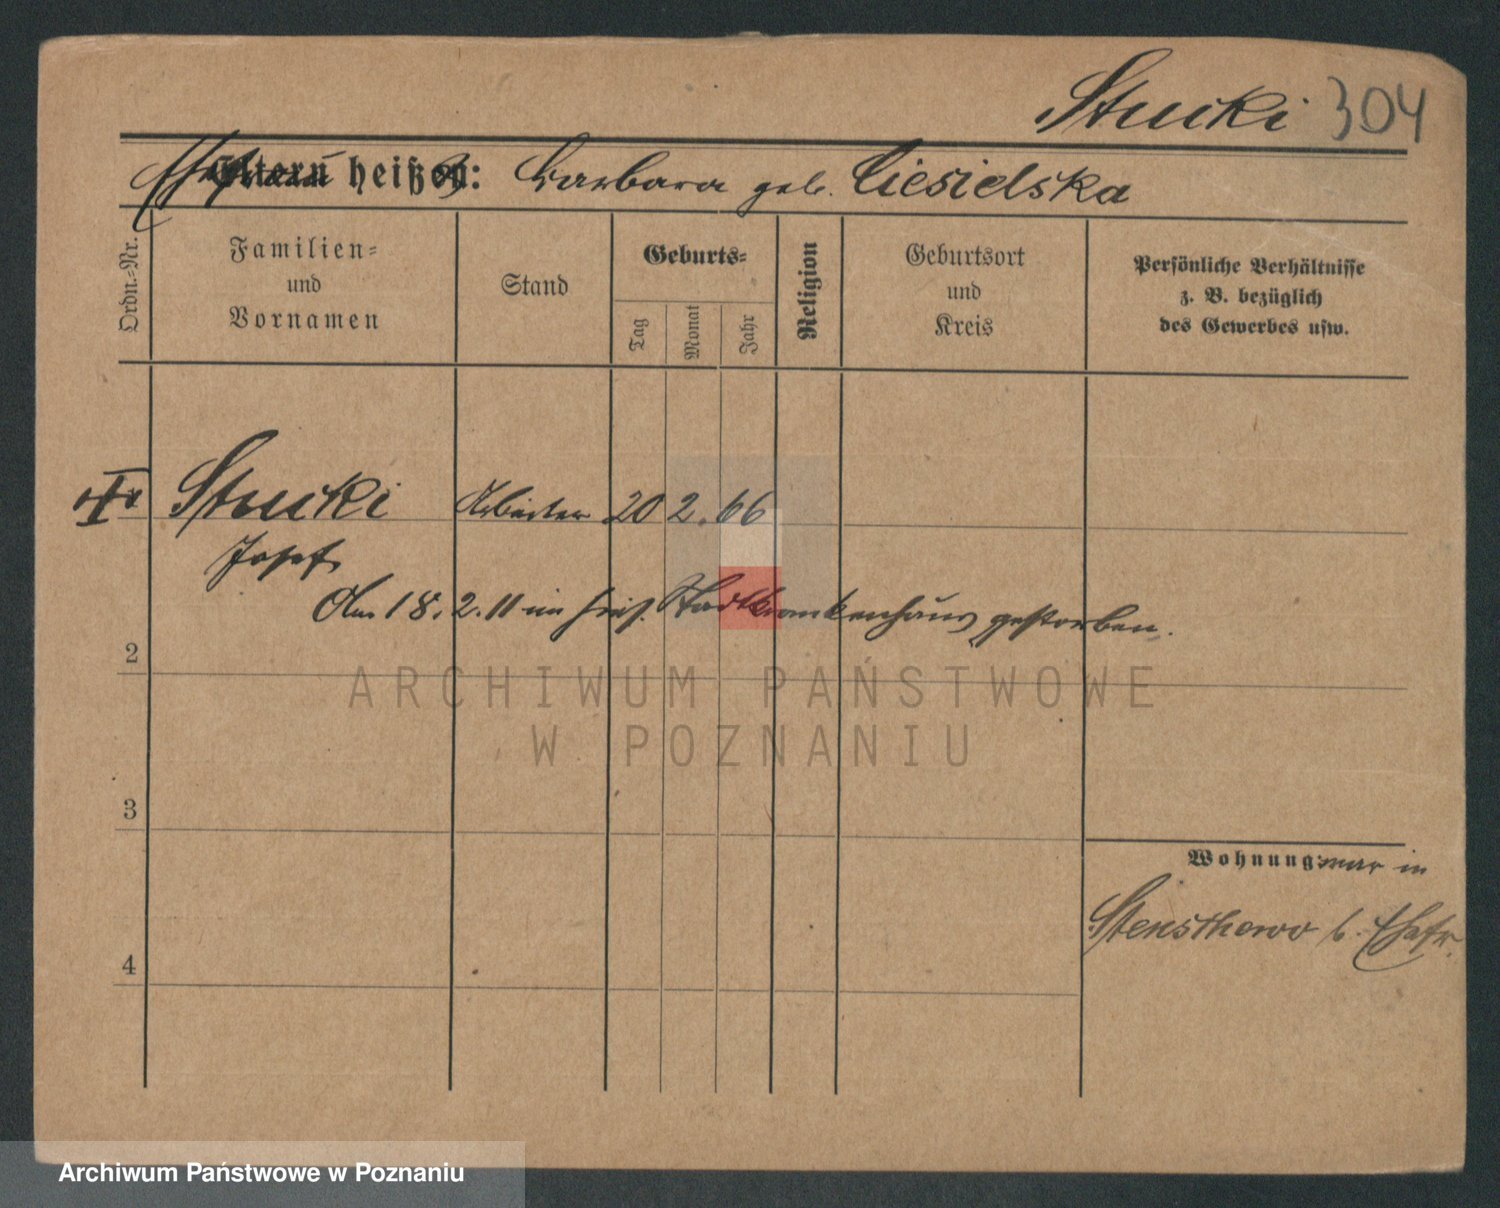 Stucki 304
Ehefrau heißt: Barbara geb. Ciesielska
Ordn.-Nr.
Familien-
und
Vornamen
Stand
Geburts-
Tag
Monat
Jahr
Religion
Geburtsort
und
Kreis
Persönliche Verhältnisse
z. B. bezüglich
des Gewerbes usw.
Stucki Arbeiter 20 2. 66
Josef
Am 18. 2. 11 im hies. Stadtkrankenhaus gestorben.
2
3
4
Wohnung war in
b.
ARCHIWUM PAŃSTWOWE
W POZNANIU
Archiwum Państwowe w Poznaniu